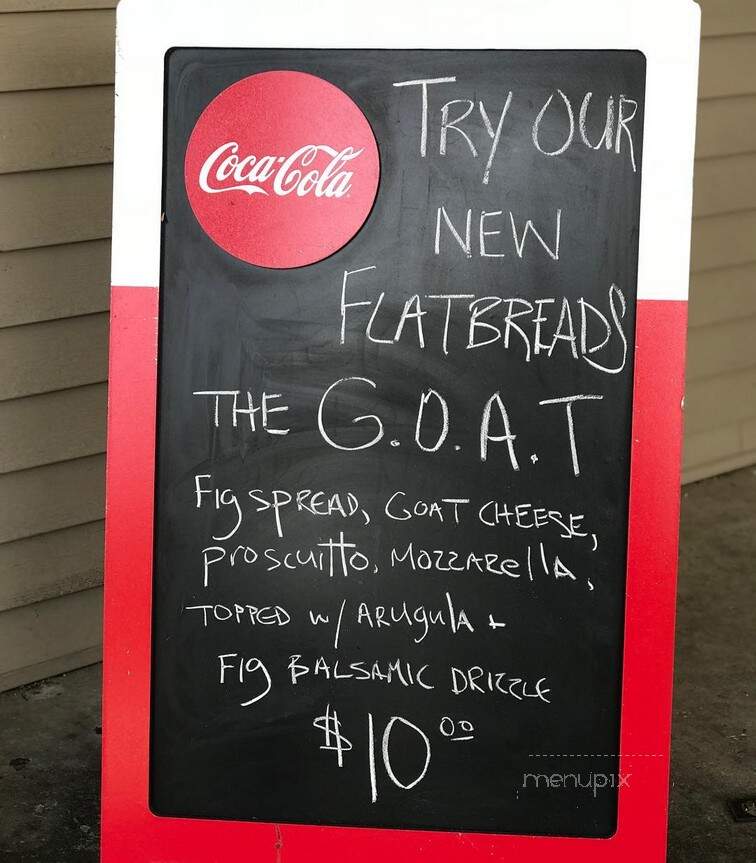 Coca-Cola
TRY OUR
NEW
FLATBREADS
THE G.O.A.T
Fig SPREAD, GOAT CHEESE,
proscuitto, MOZZARellA,
TOPPED w/ ARUgulA +
Fig BALSAMIC DRIZZLE
$10 00
menupix